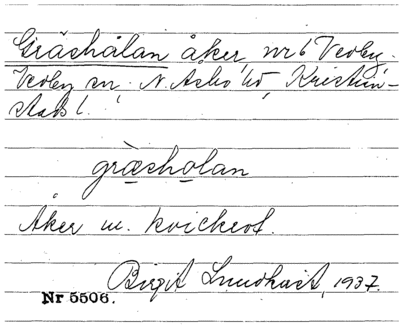 Gräshålan åker nr 6 Vedby.
Vedby sn. N. Åsbo hd, Kristian-
stads l.
græsholan
Åker m. kvickrot.
Birgit Lundqvist, 1937.
Nr 5506.